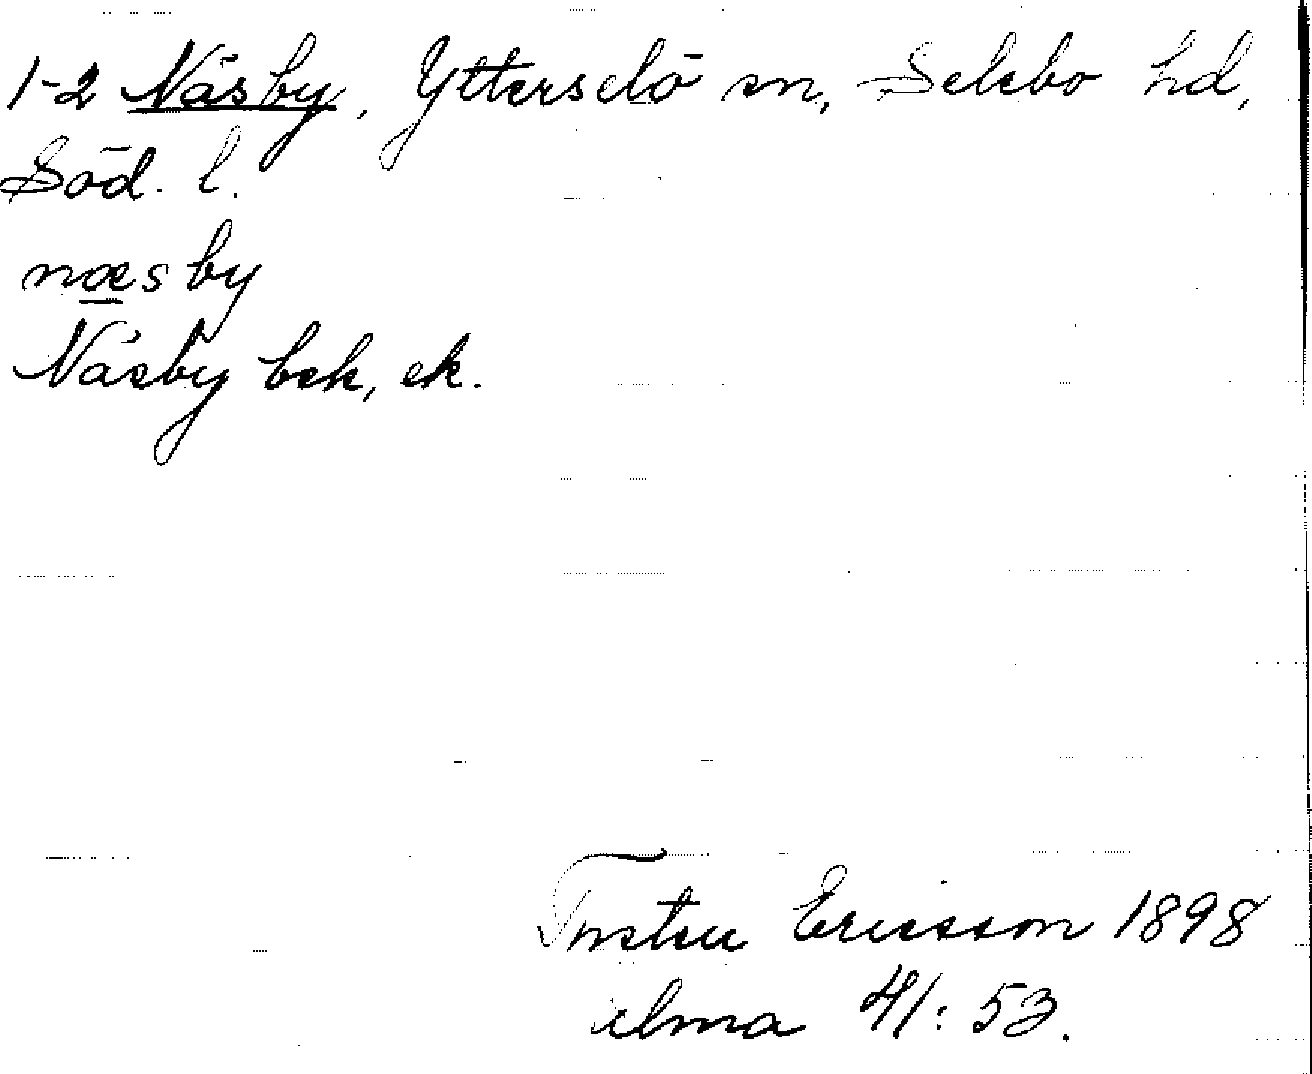 1-2 Näsby, Ytterselö sn, Selebo hd,
Söd. l.
næsby
Näsby bek, ek.
Ericsson 1898
41: 53.